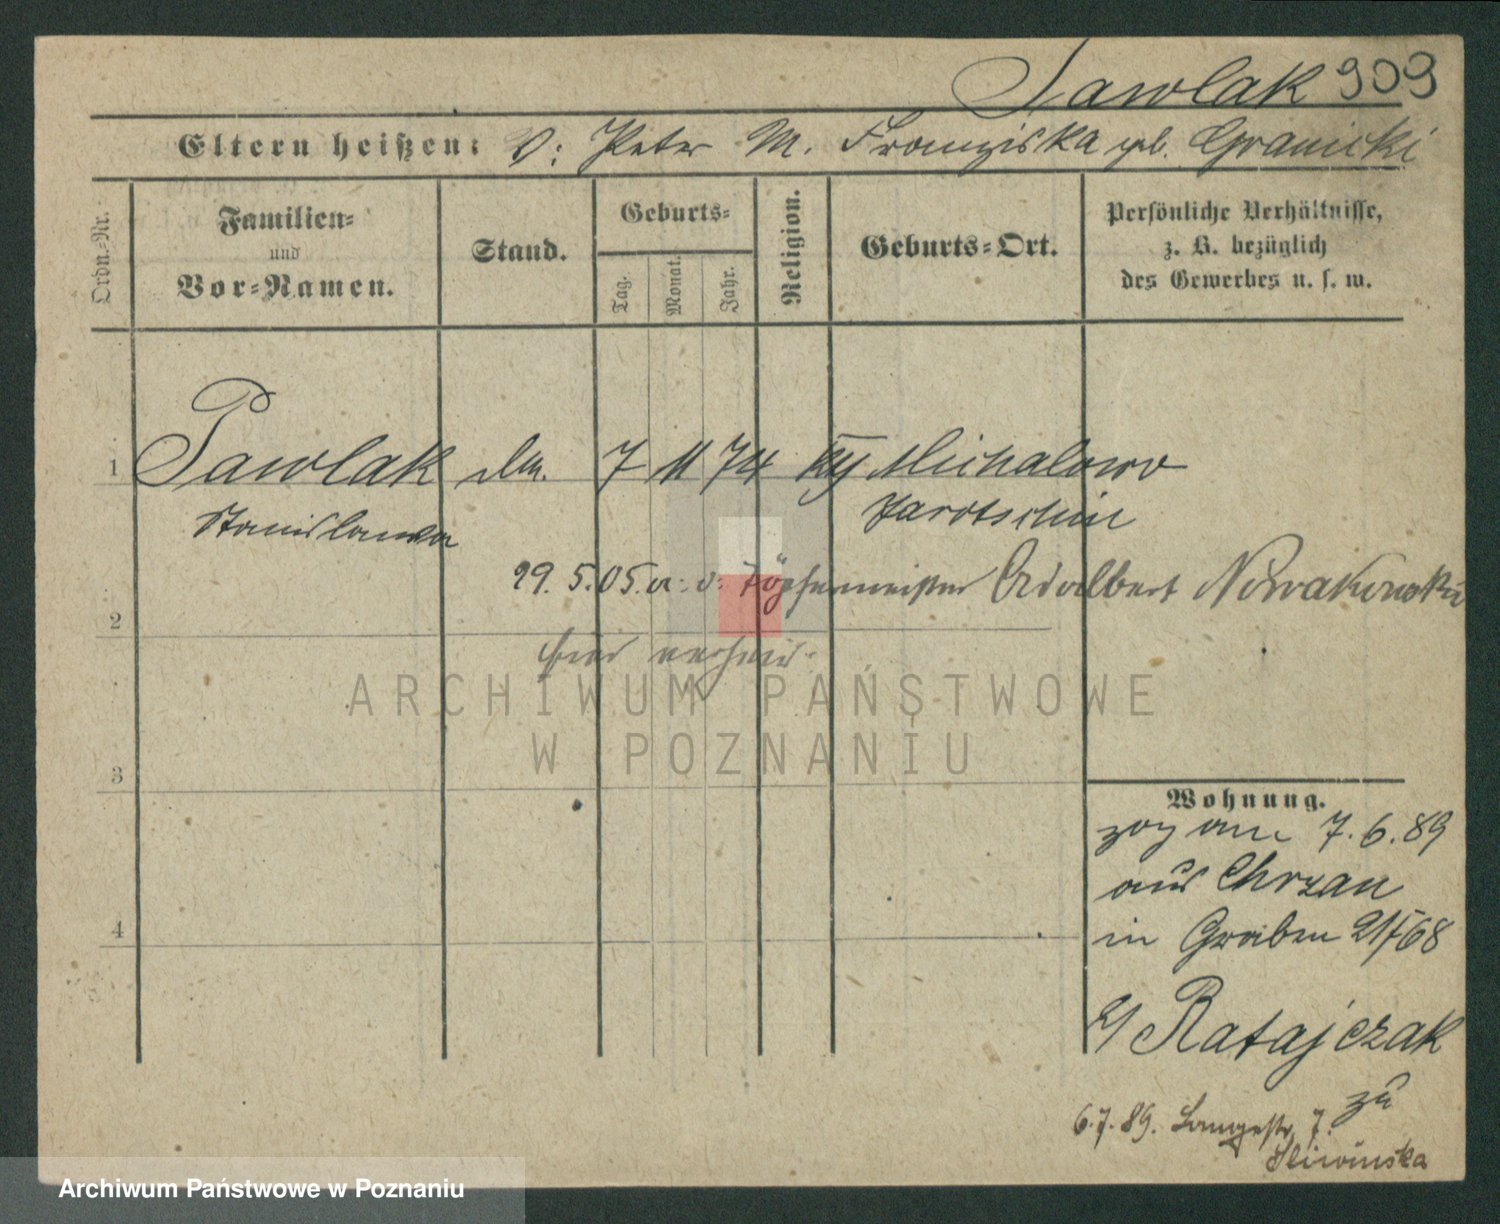 Pawlak 909
Eltern heißen: V: Peter M. Franziska geb. Granicki
Ordn.-Nr.
Familien-
und
Vor-Namen.
Stand.
Geburts-
Tag.
Monat.
Jahr.
Religion.
Geburts-Ort.
Persönliche Verhältnisse,
z. B. bezüglich
des Gewerbes u. s. w.
1 Pawlak 7 11 74 Michalowo
Stanislawa Jarotschin
29. 5. 05. Töpfermeister Adalbert Nowakowski
2 hier
3
4
Wohnung.
zog am 7. 6. 89
aus Chrzan
in Graben
Ratajczak
zu
6. 7. 89. Langestr. 7.
Sliwinska
ARCHIWUM PAŃSTWOWE
W POZNANIU
Archiwum Państwowe w Poznaniu